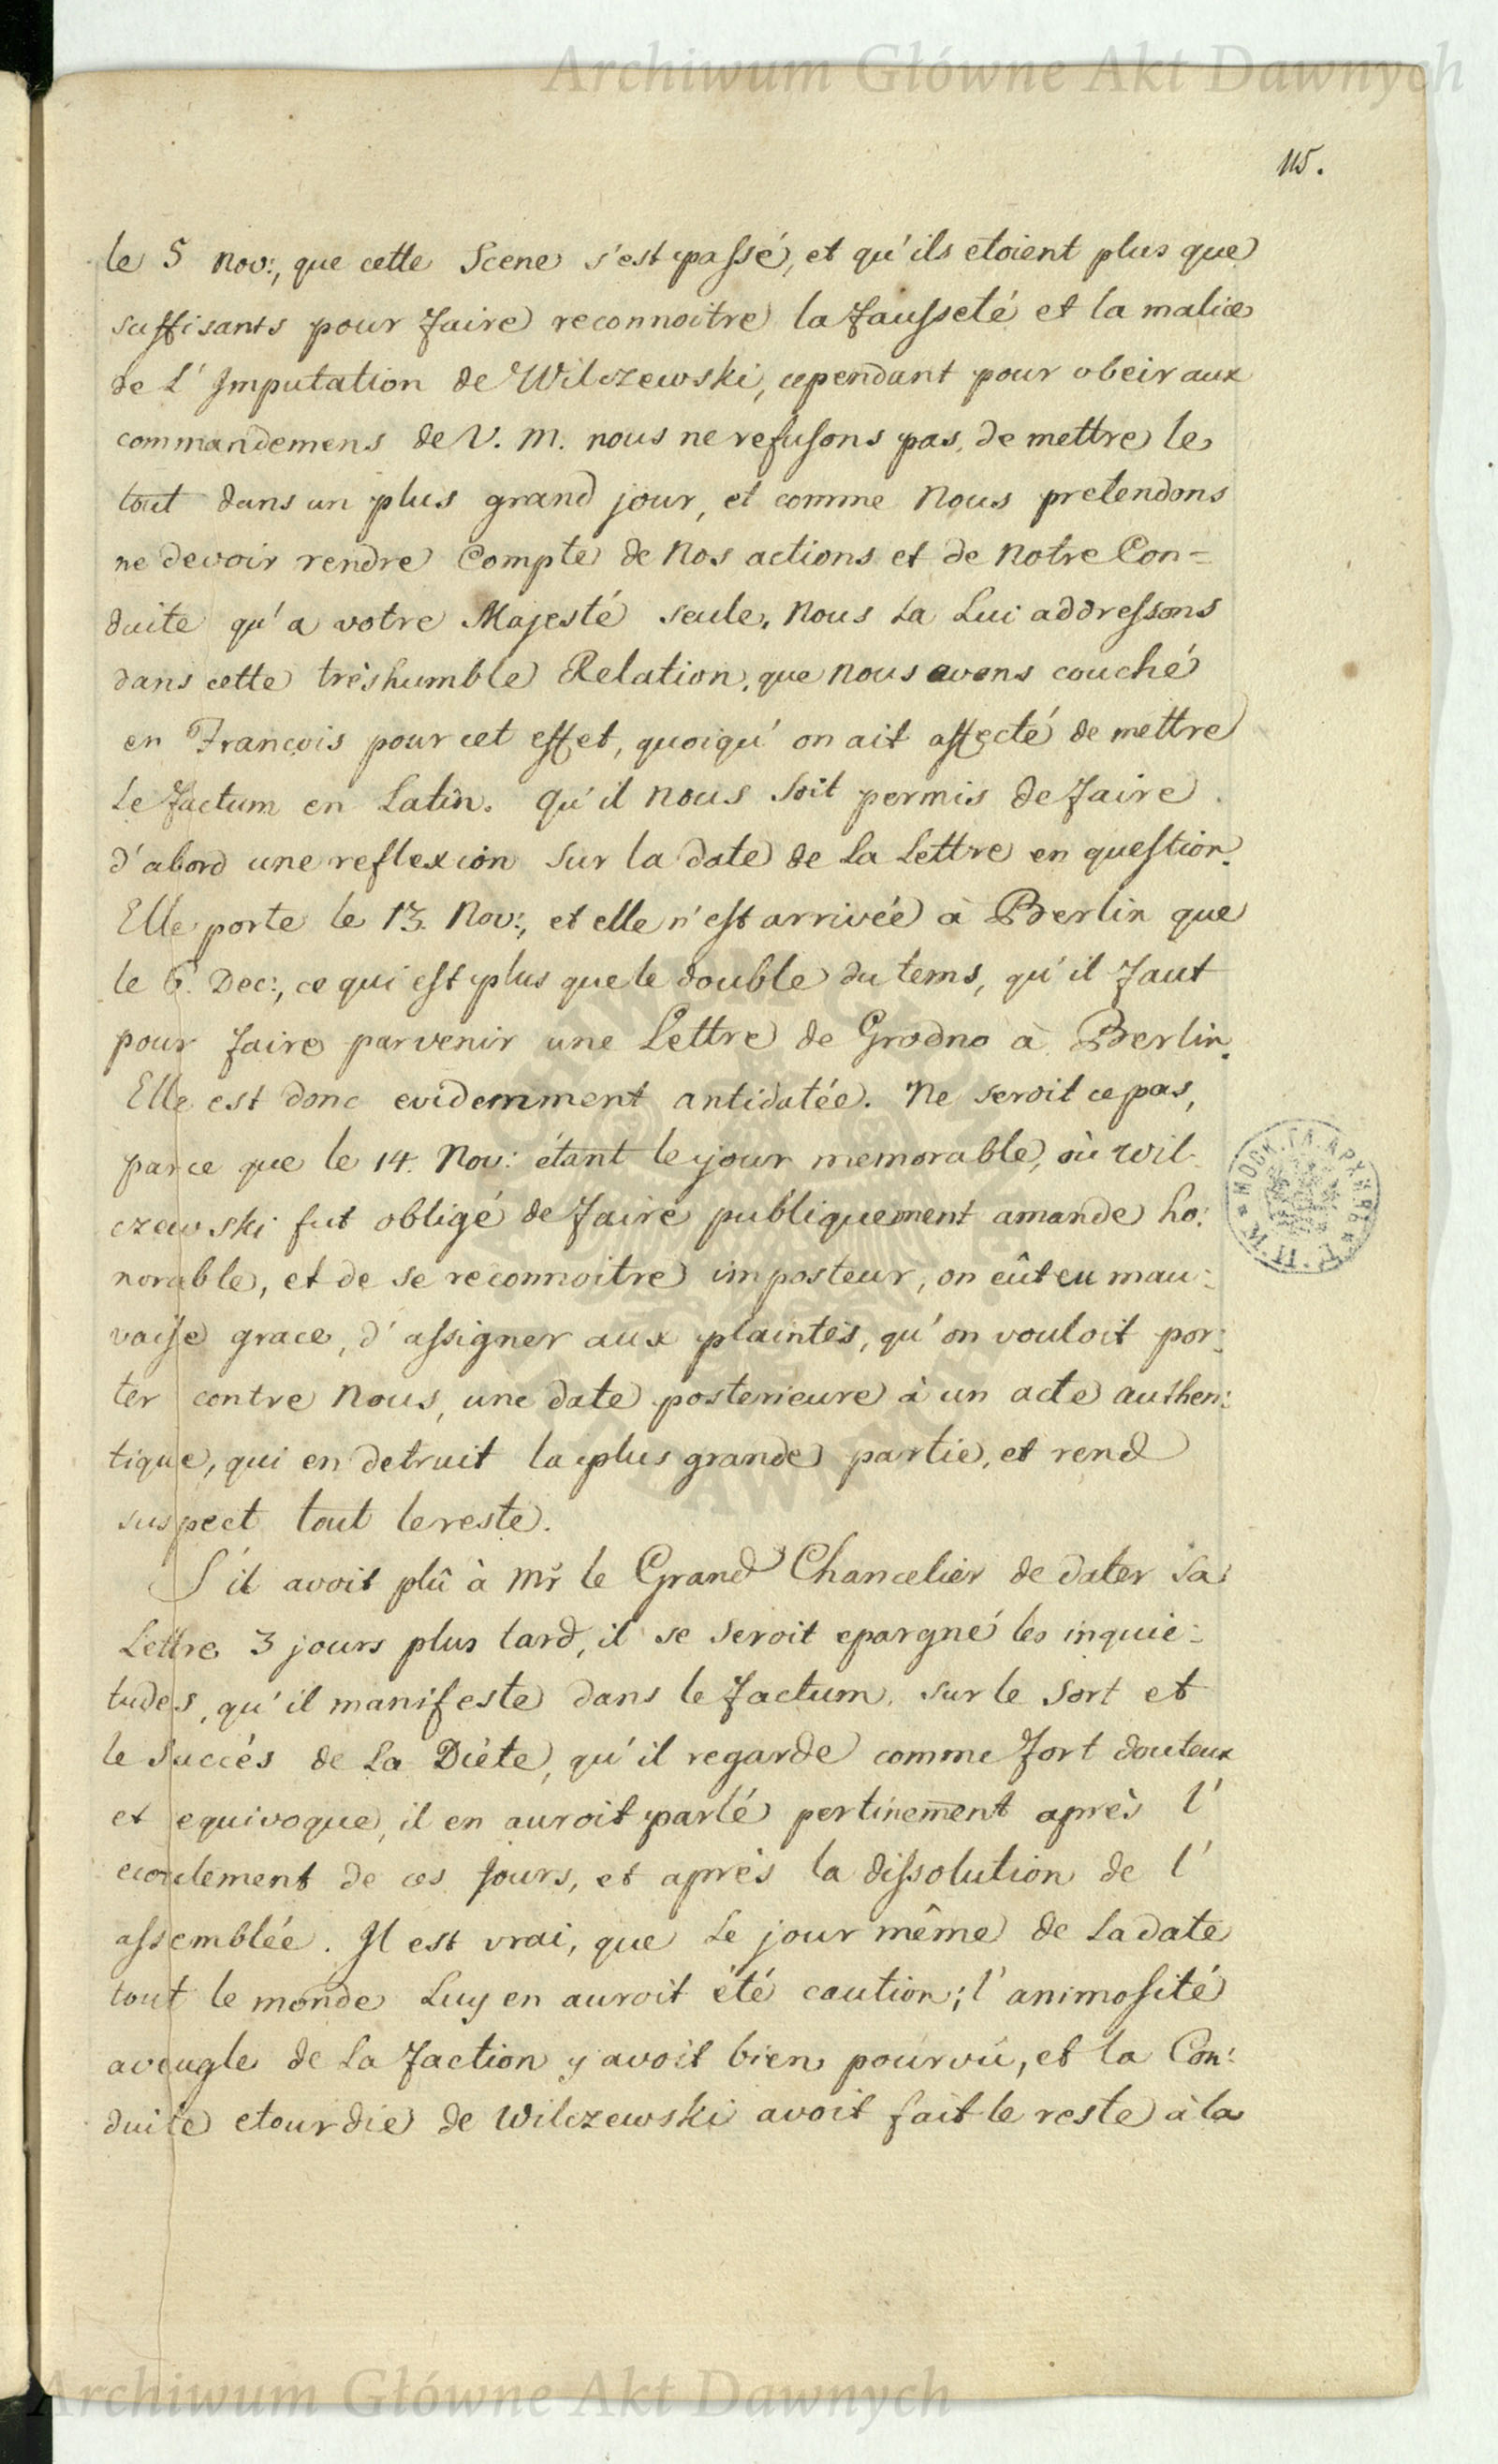 Archiwum Główne Akt Dawnych
115.
le 5 Nov:, que cette Scene s'est passé, et qu'ils etoient plus que
suffisants pour faire reconnoitre la fausseté et la malice
de L'Imputation de Wilczewski, cependant pour obeir aux
commandemens de V. M. nous ne refusons pas, de mettre le
tout dans un plus grand jour, et comme Nous pretendons
ne devoir rendre Compte de Nos actions et de Notre Con=
duite qu'a votre Majesté seule, Nous La Lui addressons
dans cette trèshumble Relation, que Nous avons couché
en François pour cet effet, quoiqu'on ait affecté de mettre
Le factum en Latin. Qu'il Nous soit permis de faire
d'abord une reflexion sur la date de La Lettre en question.
Elle porte le 13. Nov:, et elle n'est arrivée à Berlin que
le 6. Dec:, ce qui est plus que le double du tems, qu'il faut
pour faire parvenir une Lettre de Grodno à Berlin.
Elle est donc evidemment antidatée. Ne seroit ce pas,
parce que le 14. Nov: étant le jour memorable, où Wil-
czewski fut obligé de faire publiquement amande ho:
norable, et de se reconnoitre imposteur, on eût eu mau:
vaise grace, d'assigner aux plaintes, qu'on vouloit por:
ter contre Nous, une date posterieure à un acte authen:
tique, qui en detruit la plus grande partie, et rend
suspect tout le reste.
S'il avoit plû à Mr le Grand Chancelier de dater sa
Lettre 3 jours plus tard, il se seroit epargné les inquie:
tudes, qu'il manifeste dans le factum, sur le Sort et
le Succés de La Diète, qu'il regarde comme fort douteux
et equivoque, il en auroit parlé pertinement après l'
ecoulement de ces Jours, et après la dissolution de l'
assemblée. Il est vrai, que Le jour même de La date
tout le monde Luy en auroit été caution; l'animosité
aveugle de La faction y avoit bien pourvû, et la Con:
duite etourdie de Wilczewski avoit fait le reste à la
Archiwum Główne Akt Dawnych